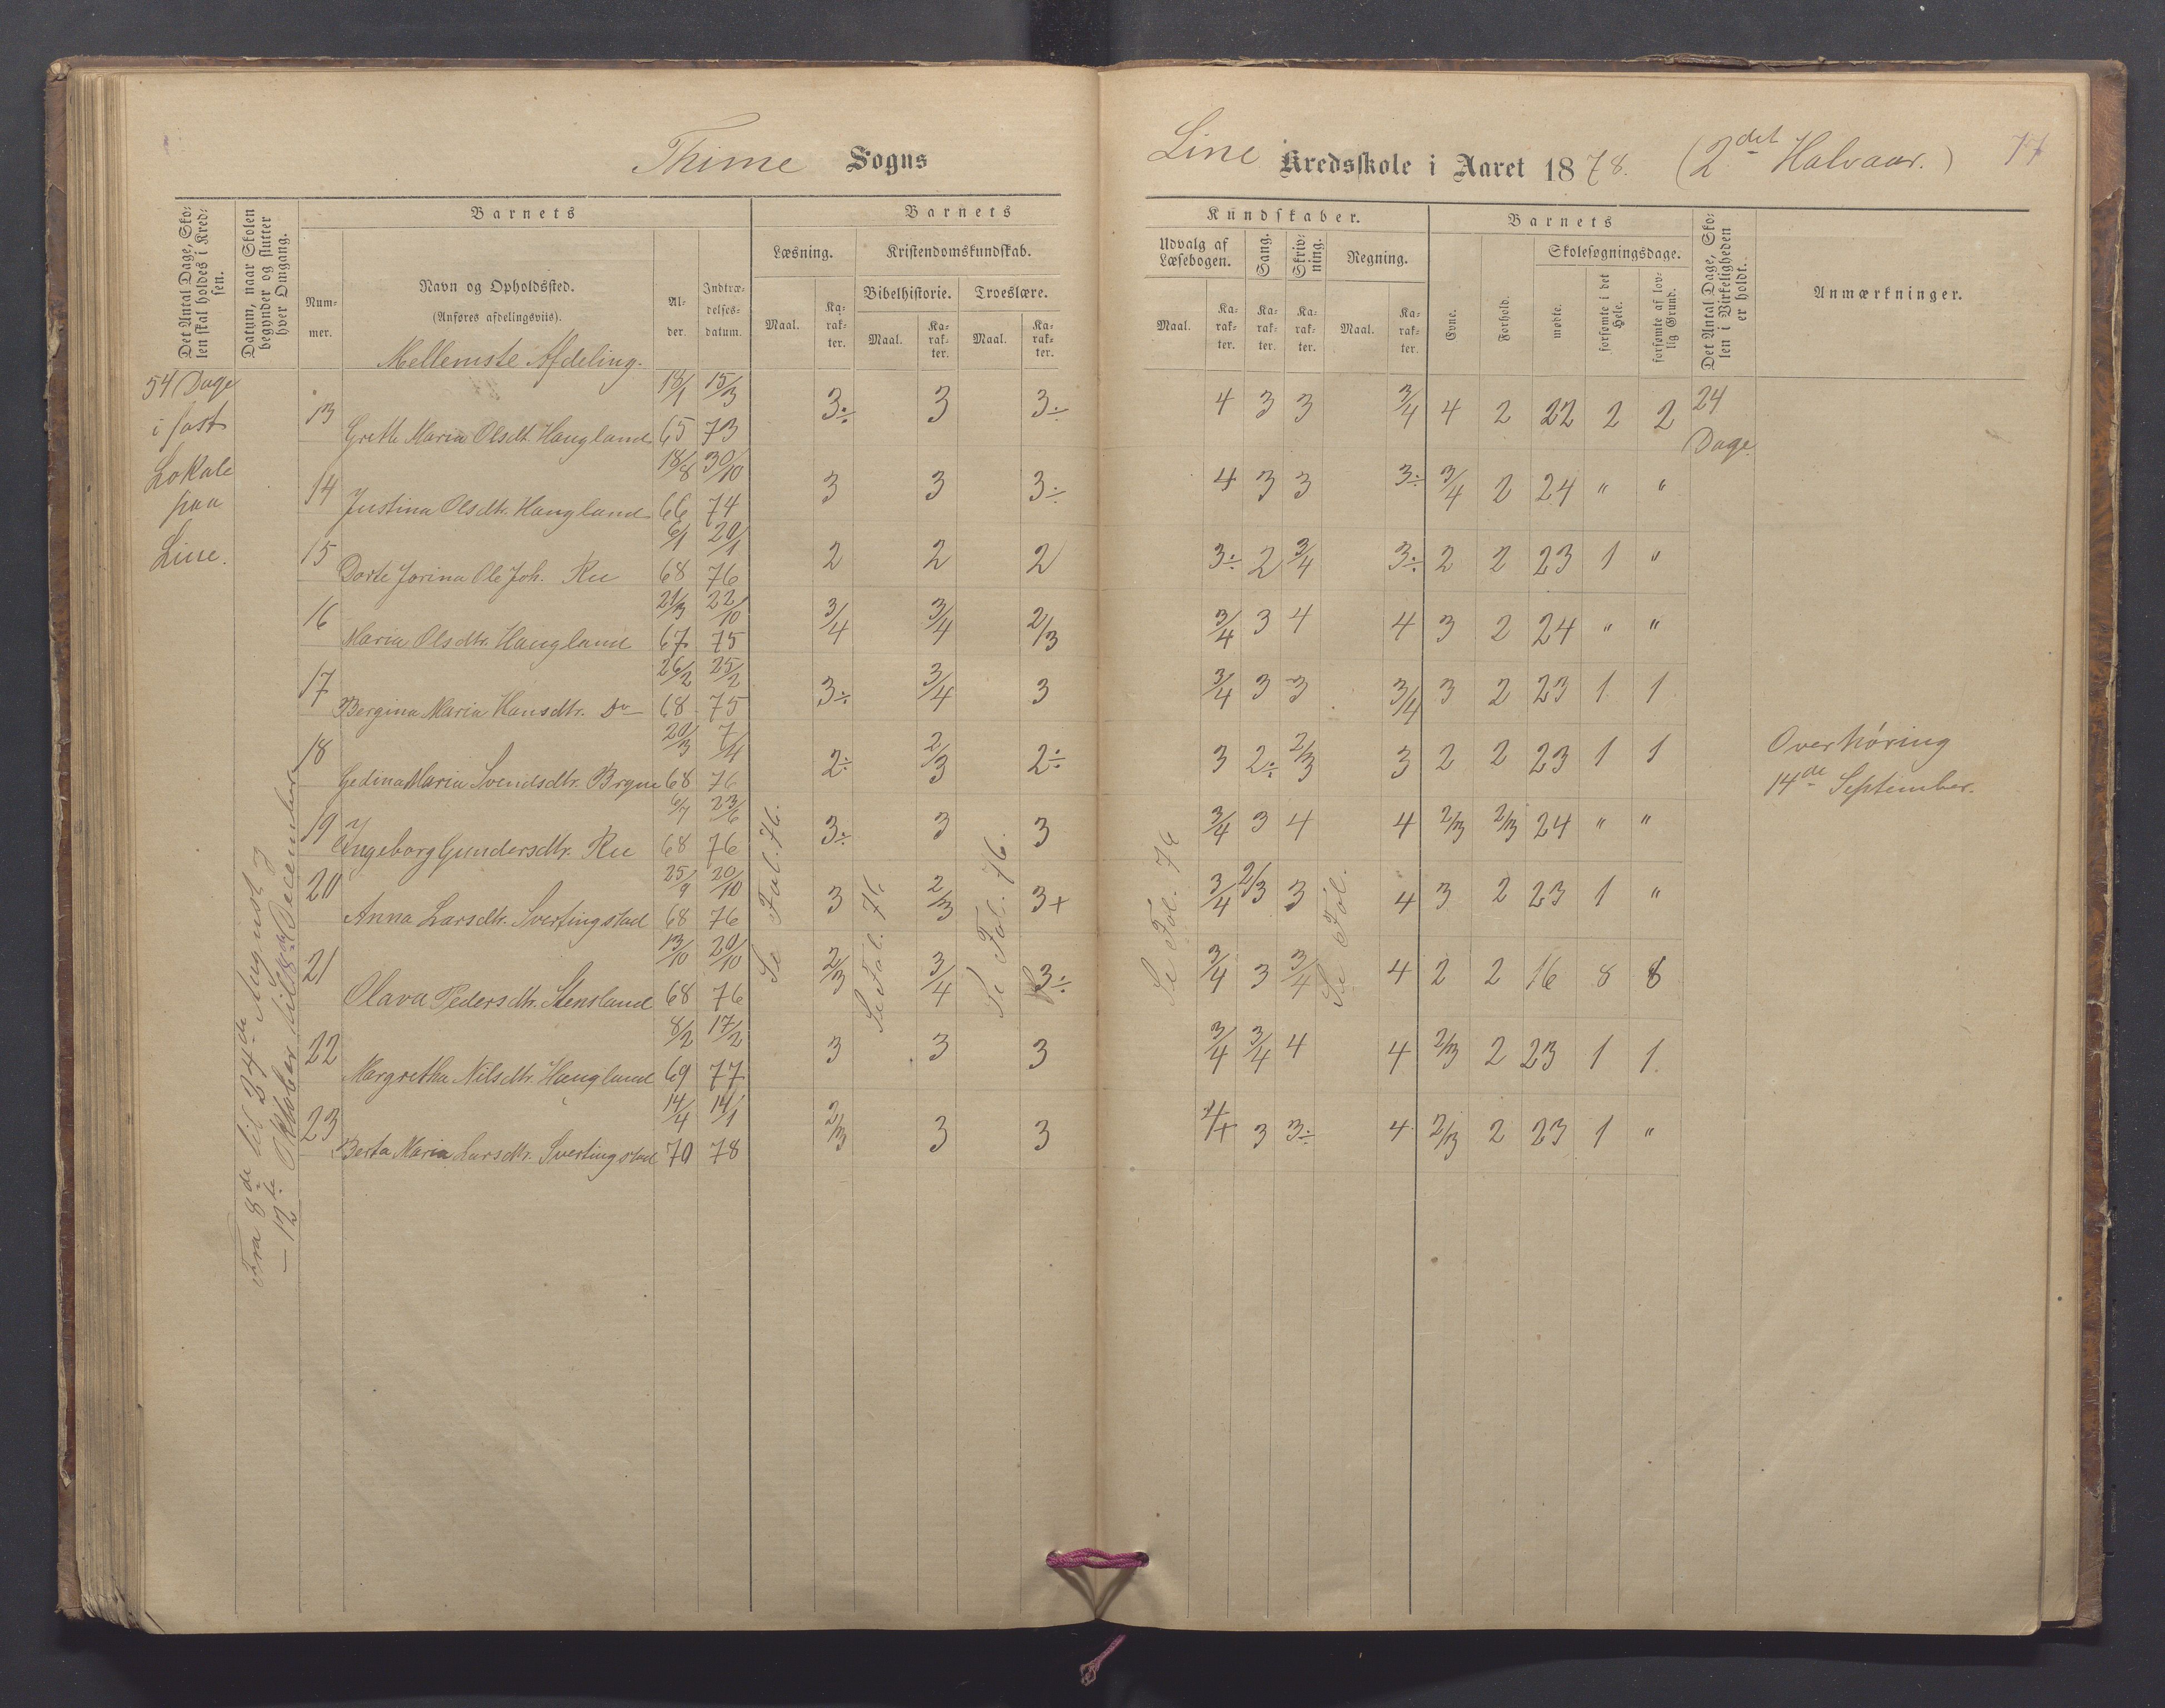 Thime Sogns
Line Kredsskole i Aaret 1878. (2det Halvaar.)
Det Antal Dage, Skolen skal holdes i Kredsen.
Datum, naar Skolen begynder og slutter hver Omgang.
Barnets
Nummer.
Navn og Opholdssted.
(Anføres afdelingsviis).
Mellemste Afdeling.
Alder.
Indtrædelsesdatum.
Barnets
Læsning.
Kristendomskundskab.
Bibelhistorie. Troeslære.
Maal. Karakter. Maal. Karakter. Maal. Karakter.
Kundskaber.
Udvalg af Læsebogen. Sang. Skrivning. Regning.
Maal. Karakter. Karakter. Karakter. Maal. Karakter.
Barnets
Evne. Forhold.
Skolesøgningsdage.
mødte. forsømte i det Hele. forsømte af lovlig Grund.
Det Antal Dage, Skolen i Virkeligheden er holdt.
Anmærkninger.
54 Dage
i fast
Lokale
paa
Line.
Fra 8de til 24de August og
— 12te Oktober til 18de December
13 Grethe Maria Olsdt. Haugland 18/1 65 15/3 73 3÷ 3 3÷ 4 3 3 3/4 4 2 22 2 2 24 Dage
14 Justina Olsdtr. Haugland 18/8 66 30/10 74 3 3 3÷ 4 3 3 3÷ 3/4 2 24 " "
15 Dorte Jorina Ole Joh. Ree 6/1 68 20/1 76 2 2 2 3÷ 2 3/4 3÷ 2 2 23 1 "
16 Maria Olsdtr. Haugland 21/3 67 22/10 75 3/4 3/4 2/3 3/4 3 4 4 3 2 24 " "
17 Bergina Maria Hansdtr. Do 26/2 68 25/2 75 3÷ 3/4 3 3/4 3 3 3/4 3 2 23 1 1
18 Gedina Maria Svendsdtr. Bryne 20/3 68 7/4 76 2÷ 2/3 2÷ 3 2÷ 2/3 3 2 2 23 1 1
Overhøring
14de September.
19 Ingeborg Gundersdtr. Ree 6/7 68 23/6 76 3÷ 3 3 3/4 3 4 4 2/3 2/3 24 " "
20 Anna Larsdtr. Svertingstad 25/9 68 20/10 76 3 2/3 3+ 3/4 2/3 3 4 3 2 23 1 "
21 Olava Pedersdtr. Stensland 13/10 68 20/10 76 2/3 3/4 3÷ 3/4 3 3/4 4 2 2 16 8 8
22 Margretha Nilsdtr. Haugland 8/2 69 17/2 77 3 3 3 3/4 3/4 4 4 2/3 2 23 1 1
23 Berta Maria Larsdtr. Svertingstad 14/4 70 14/1 78 2/3 3 3 4+ 3 3÷ 4 2/3 2 23 1 "
Se Fol. 76.
Se Fol. 76
Se Fol. 76.
Se Fol. 76
Se Fol.